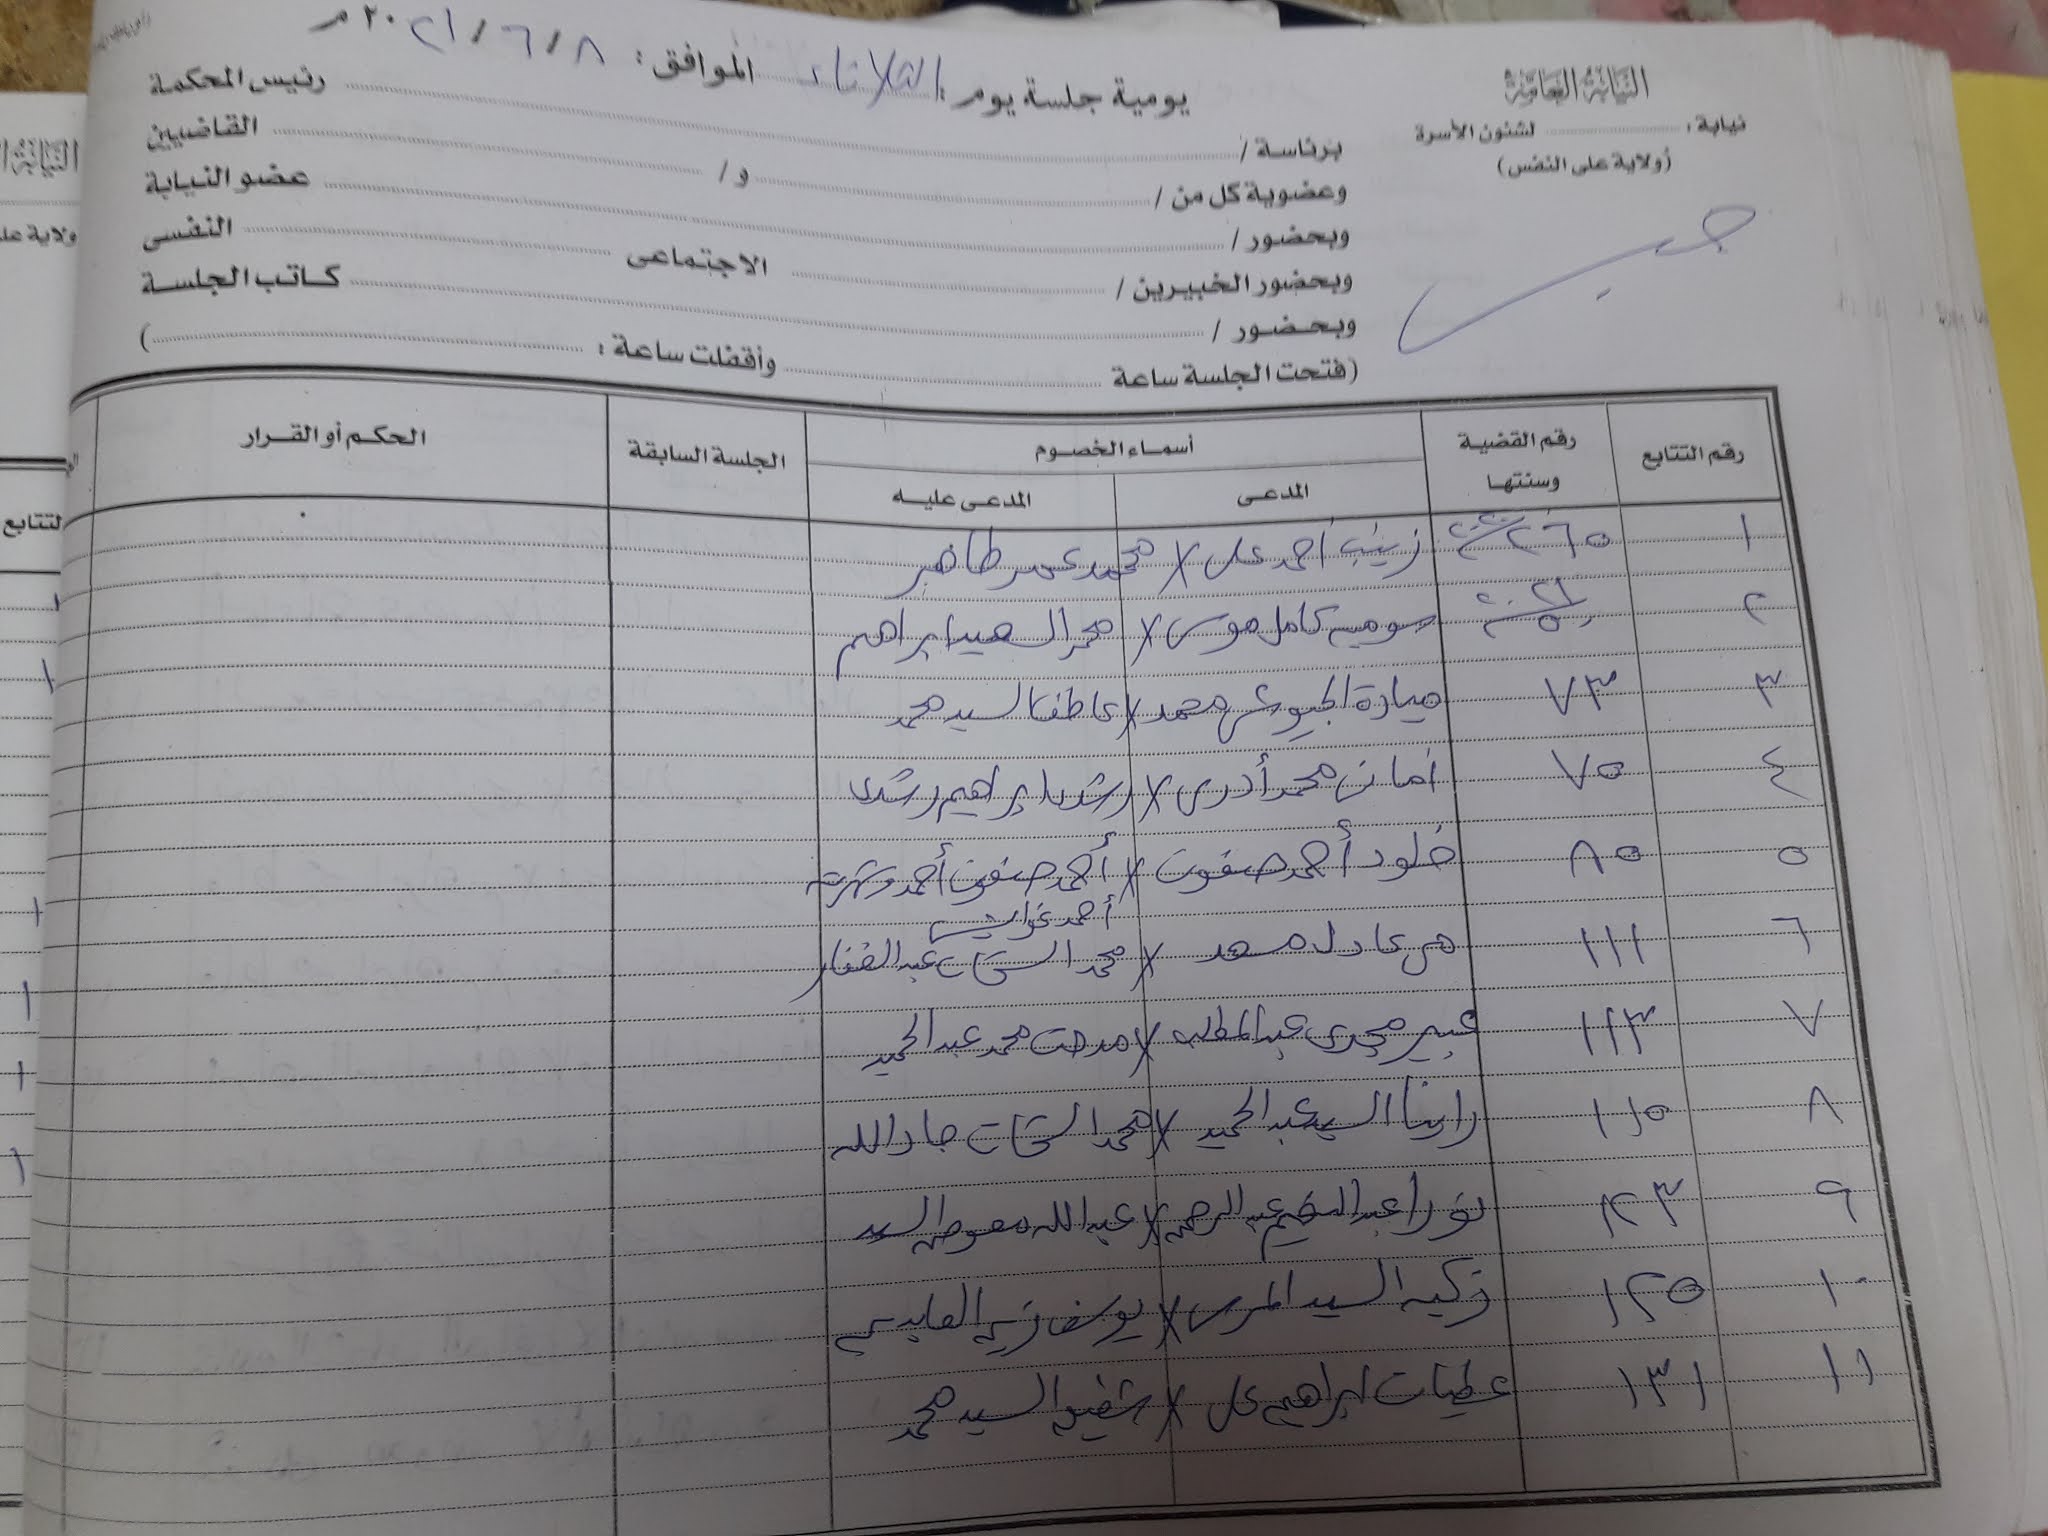 النيابة العامة
نيابة : لشئون الأسرة
(ولاية على النفس)
يومية جلسة يوم : الثلاثاء الموافق : ٨ / ٦ / ٢٠٢١ م
برئاسة / رئيس المحكمة
وعضوية كل من / و / القاضيين
وبحضور / عضو النيابة
وبحضور الخبيرين / الاجتماعى النفسى
وبحضور / كاتب الجلسة
(فتحت الجلسة ساعة وأقفلت ساعة : )
رقم التتابع رقم القضية وسنتها أسماء الخصوم الجلسة السابقة الحكم أو القرار
المدعى المدعى عليه
١ ٢٦٥ ٢٠٢٠ زينب أحمد على X محمد عمر طاهر
٢ ٢٠٢١ كامل موسى X محمد السعيد ابراهيم
٣ ٧٣ ميادة الجيوشى محمد X عاطف السيد محمد
٤ ٧٥ أمانى محمد X رشدى ابراهيم رشدى
٥ ٨٥ خلود أحمد صفوت X أحمد صفوت أحمد
أحمد
٦ ١١١ مى عادل سعد X محمد الشحات عبد الغفار
٧ ١١٣ عبير مجدى عبد المطلب X مدحت محمد عبد الحميد
٨ ١١٥ رانيا السيد عبد الحميد X محمد الشحات جاد الله
٩ ١٢٣ نورا عبد الرحمن X عبد الله معوض السيد
١٠ ١٢٥ زكيه السيد المرسى X يوسف زين العابدين
١١ ١٣١ عطيات ابراهيم على X شفيق السيد محمد